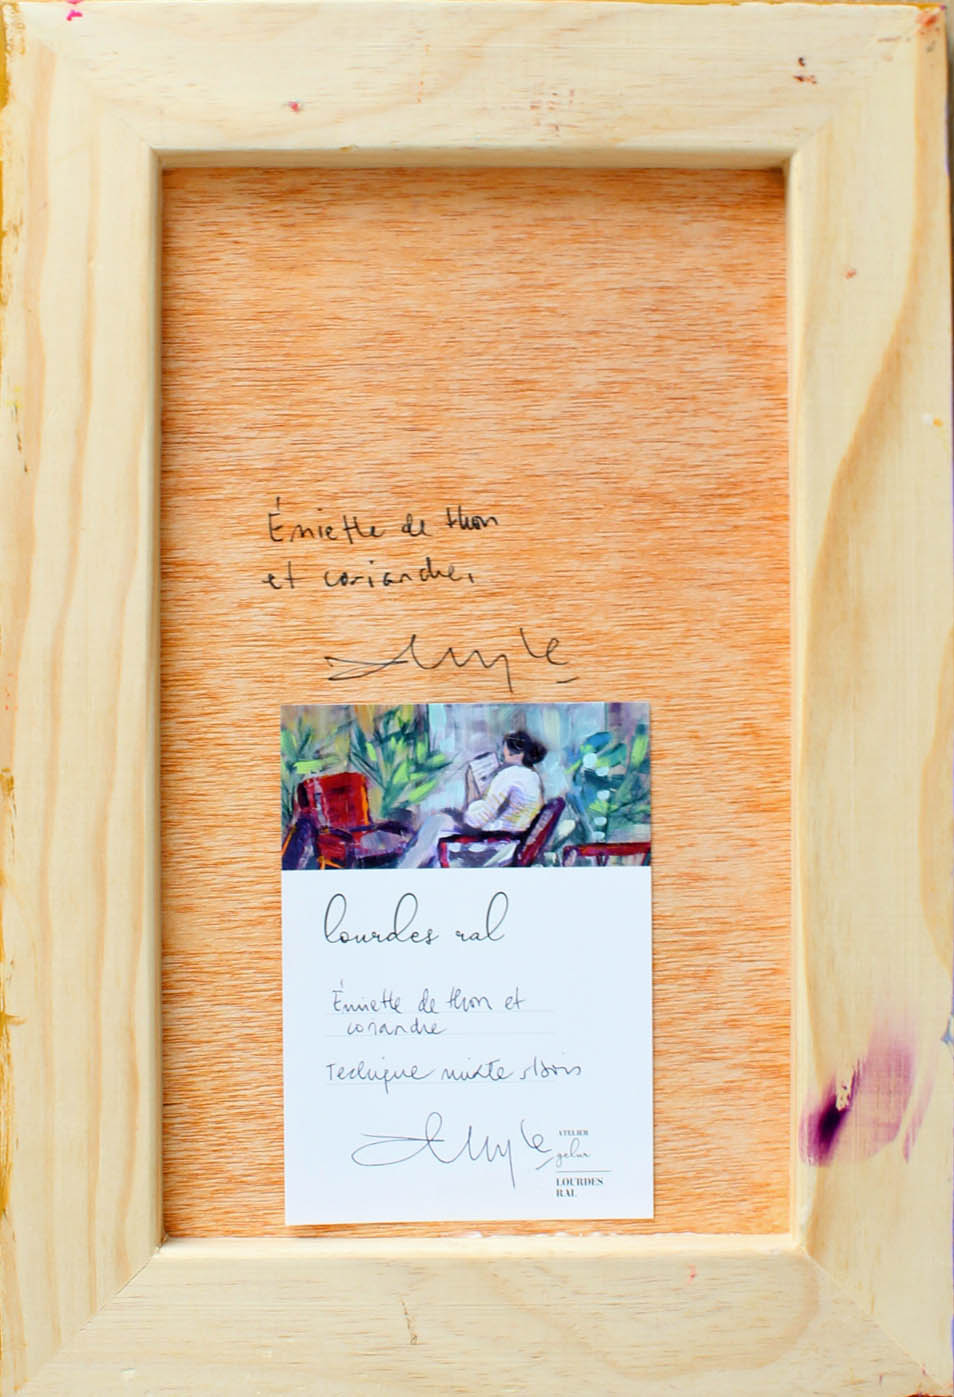 Émiette de thon
et coriandre.
lourdes ral
Émiette de thon et
coriandre
Technique mixte s/bois
ATELIER
gelur
LOURDES
RAL